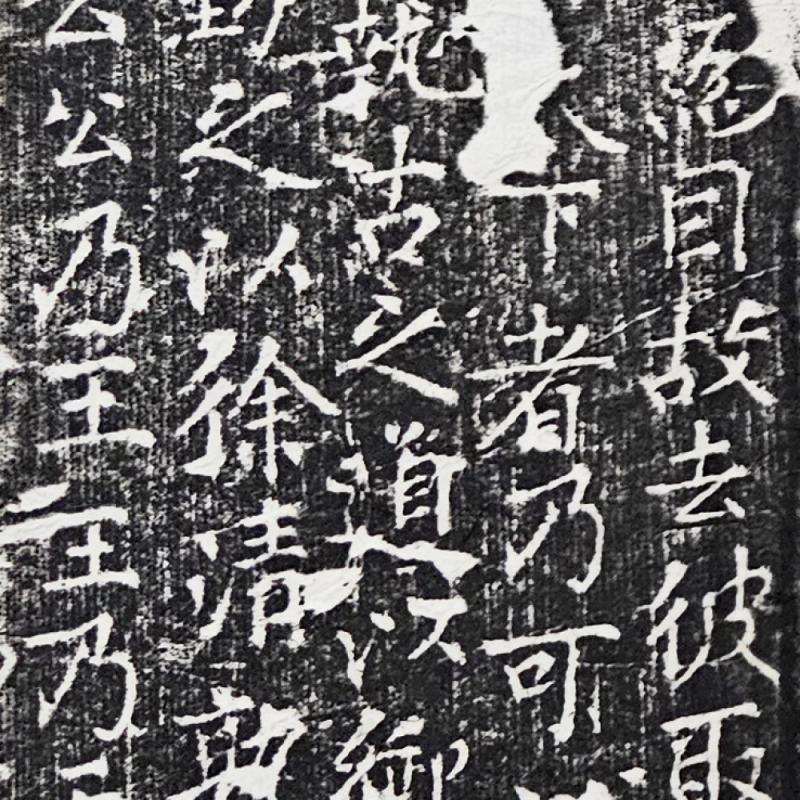 為目故去彼取
下者乃可
執古之道以御
動之以徐清孰
公公乃王王乃